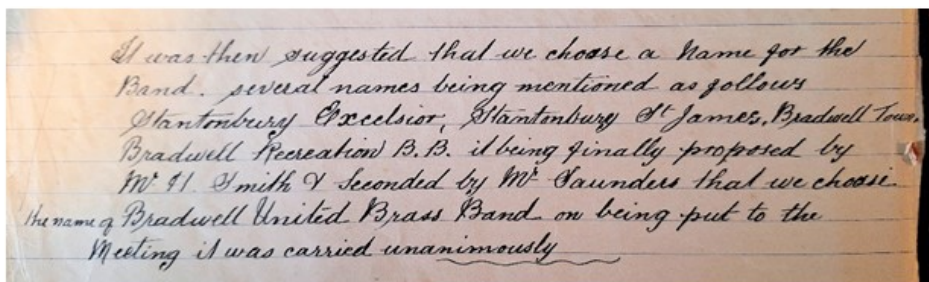 It was then suggested that we choose a Name for the
Band. several names being mentioned as follows
Stantonbury Excelsior, Stantonbury St James, Bradwell Town.
Bradwell Recreation B.B. it being finally proposed by
Mr H. Smith & Seconded by Mr Saunders that we choose
the name of Bradwell United Brass Band on being put to the
Meeting it was carried unanimously